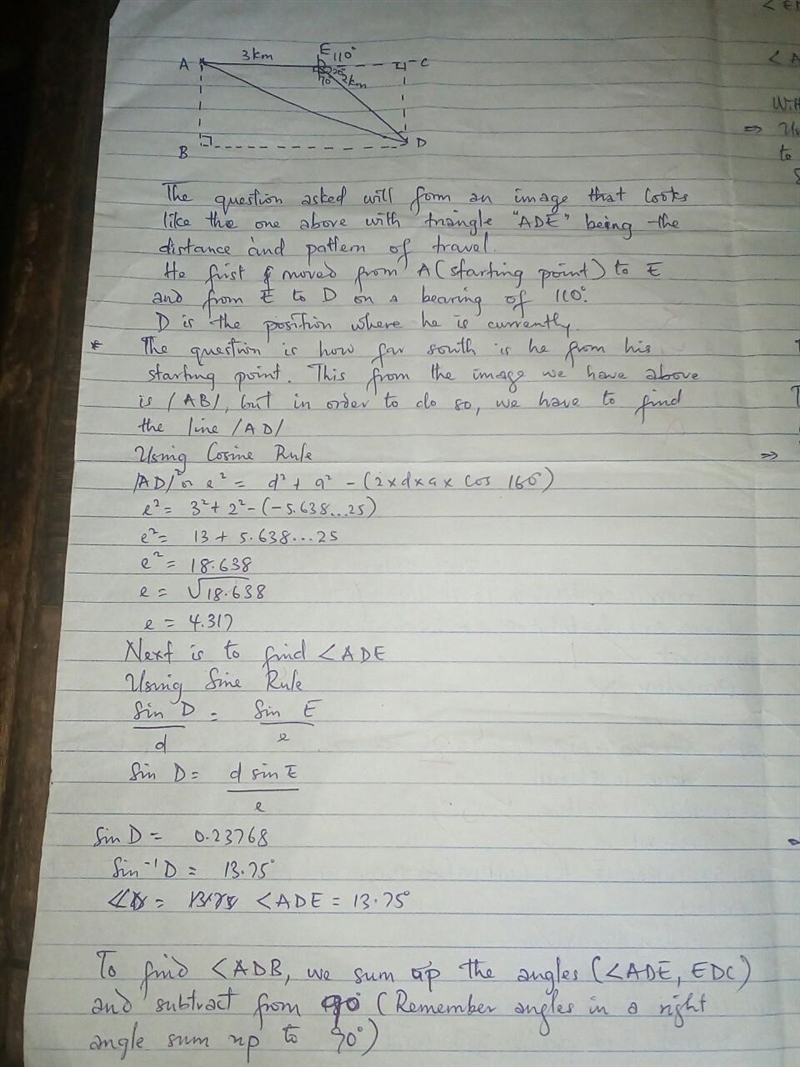 3km
E 110°
A
C
70
2km
B
D
The question asked will form an image that looks
like the one above with triangle "ADE" being the
distance and pattern of travel.
He first moved from A (starting point) to E
and from E to D on a bearing of 110°.
D is the position where he is currently.
* The question is how far south is he from his
starting point. This from the image we have above
is /AB/, but in order to do so, we have to find
the line /AD/
Using Cosine Rule
/AD/² or e² = d² + a² - (2xdxax cos 160)
e² = 3² + 2² - (-5.638...25)
e² = 13 + 5.638...25
e² = 18.638
e = √18.638
e = 4.317
Next is to find <ADE
Using Sine Rule
Sin D = Sin E
d e
Sin D = d sin E
e
Sin D = 0.23768
Sin⁻¹ D = 13.75°
<ADE = 13.75°
To find <ADB, we sum up the angles (<ADE, EDC)
and subtract from 90 (Remember angles in a right
angle sum up to 90°)
< A
With
⇒ Us
to
⇒